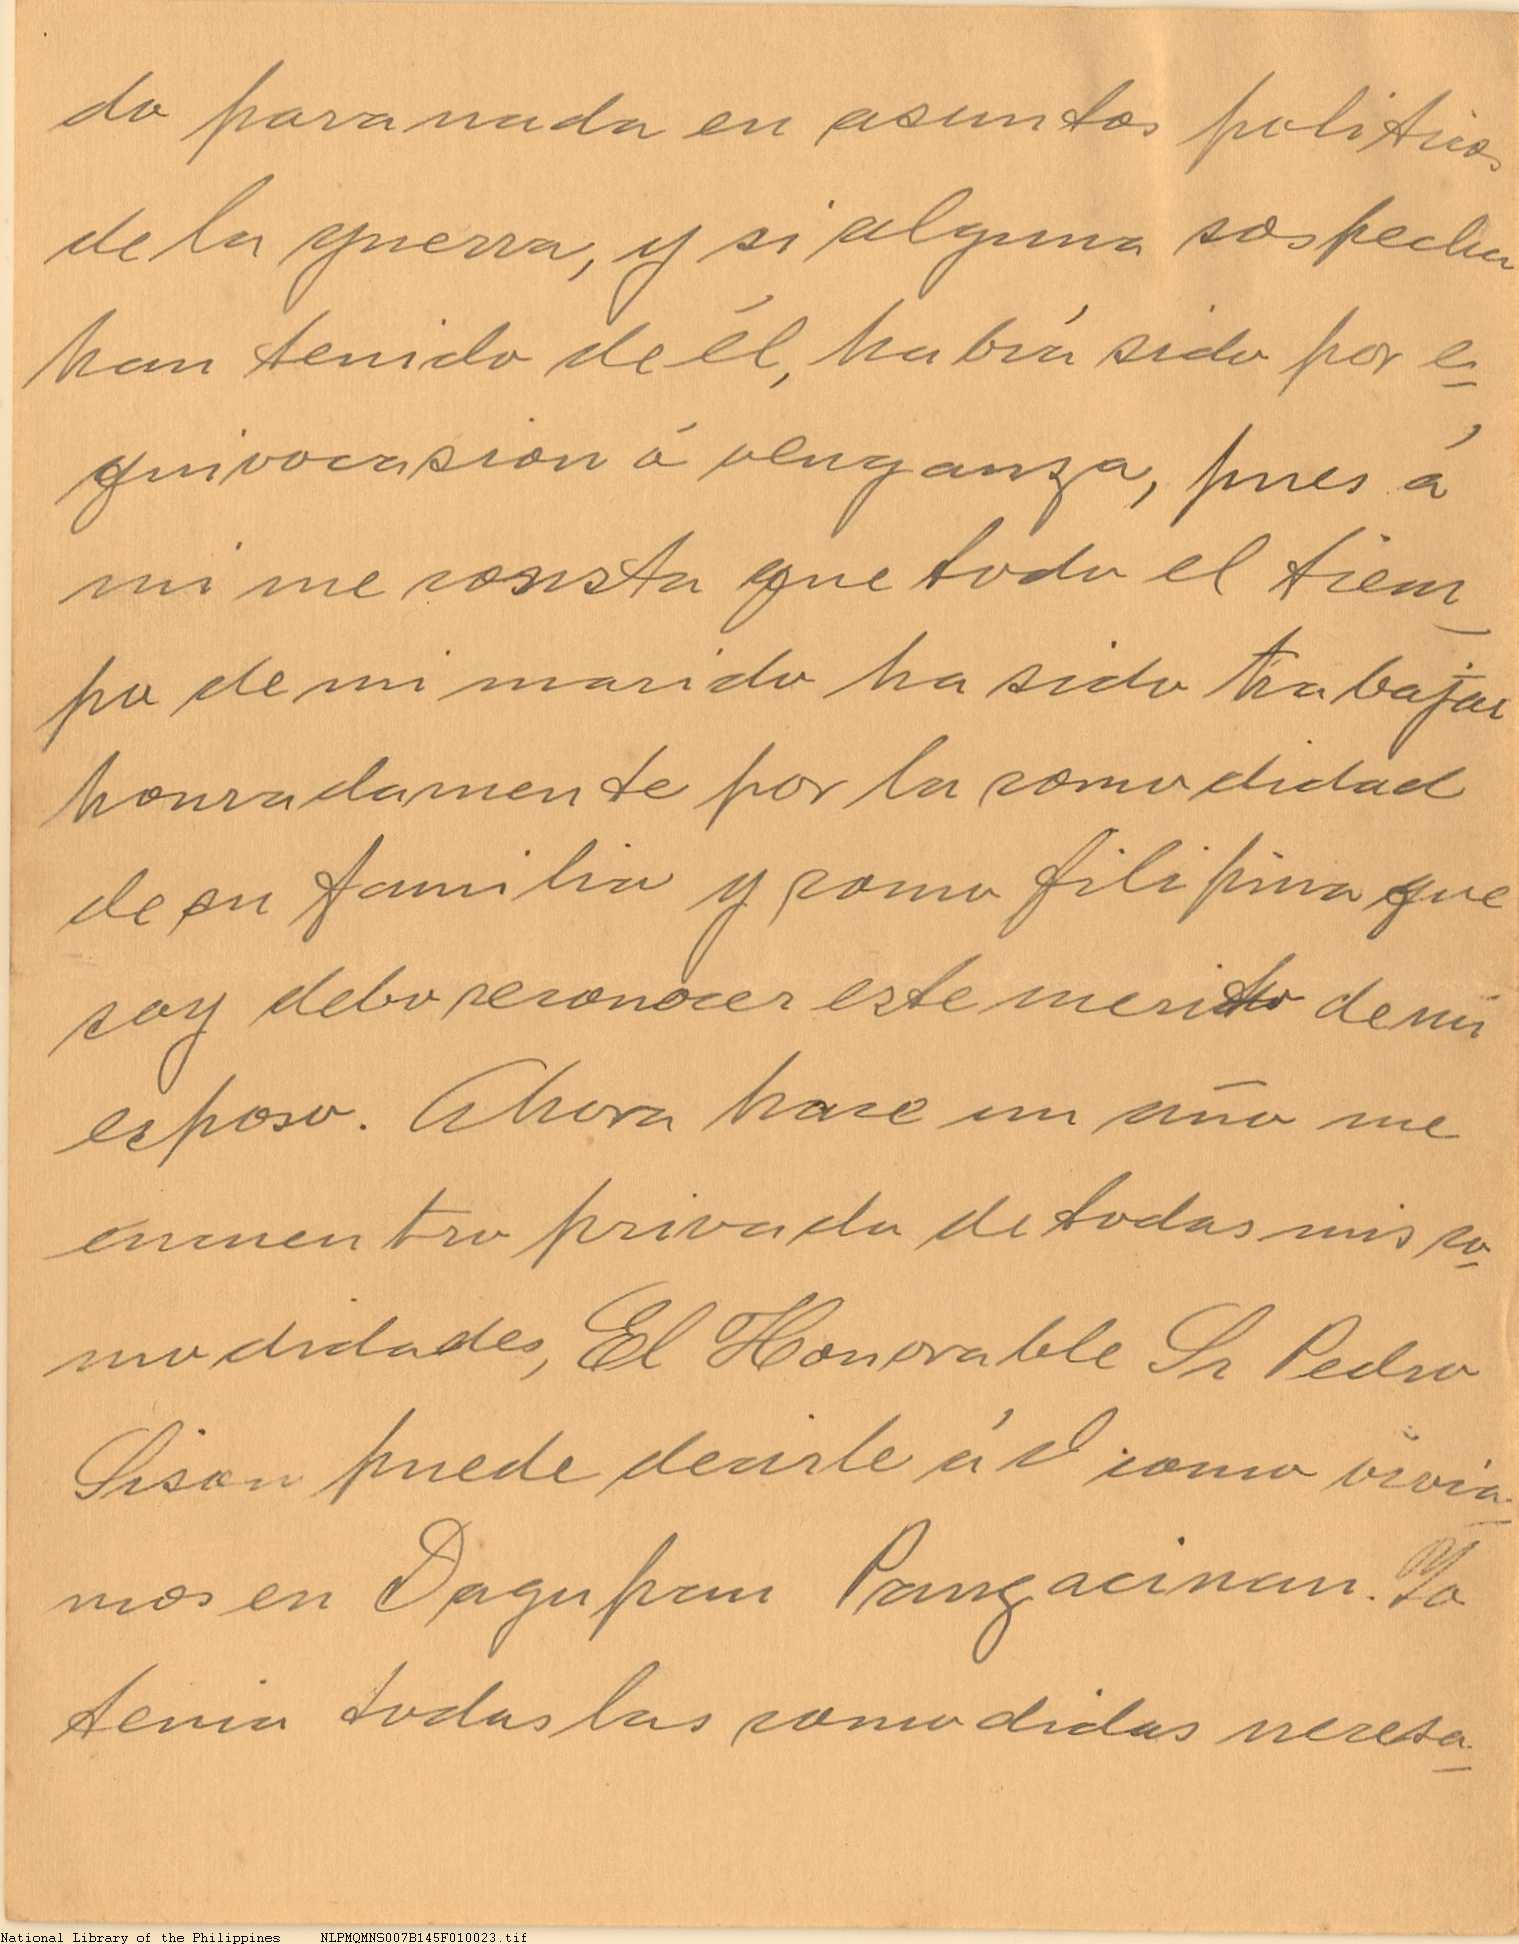 do para nada en asuntos politicos
de la guerra, y si alguna sospecha
han tenido de él, habrá sido por e-
quivocasion ó venganza, pues á
mi me consta que todo el tiem-
po de mi marido ha sido trabajar
honradamente por la comodidad
de su familia y como filipina que
soy debo reconocer este merito de mi
esposo. Ahora hace un año me
encuentro privada de todas mis co-
modidades, El Honorable Sr Pedro
Sison puede decirle á V como vivia-
mos en Dagupan Pangacinan. Yo
tenia todas las comodidas necesa-
National Library of the Philippines NLPMQMNS007B145F010023.tif